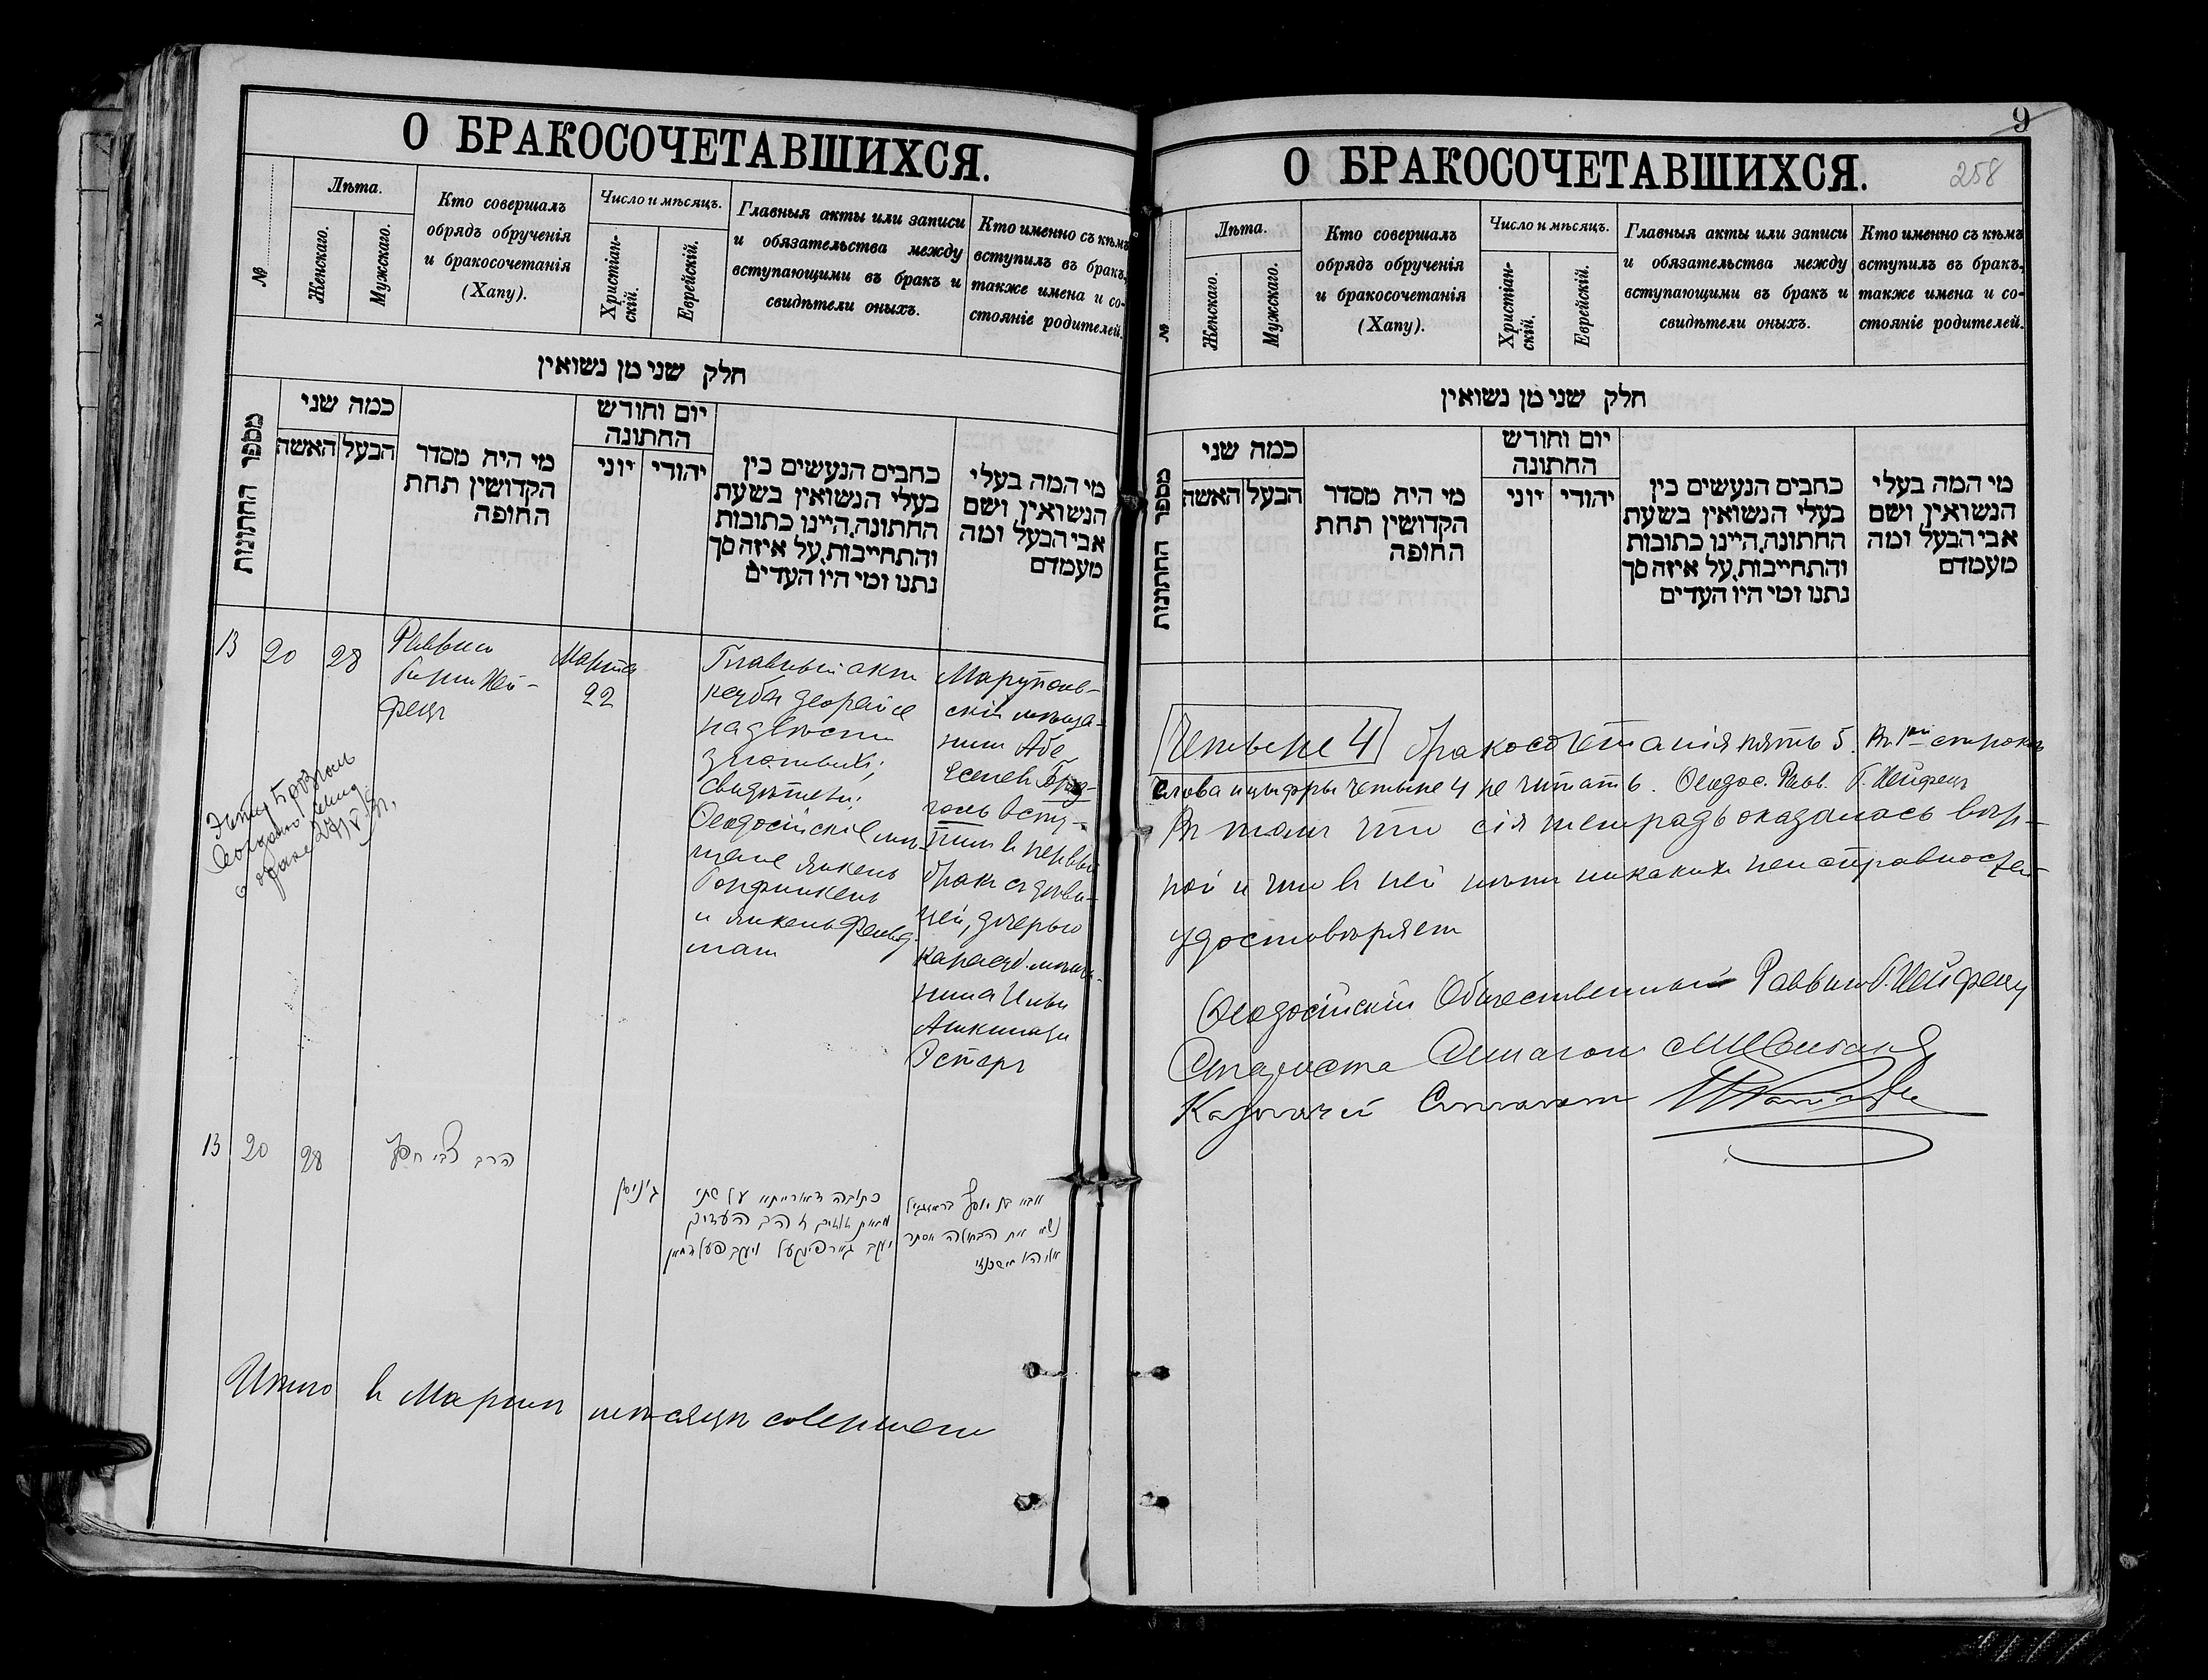 О БРАКОСОЧЕТАВШИХСЯ.
№
Лѣта.
Женскаго.
Мужскаго.
Кто совершалъ
обрядъ обрученія
и бракосочетанія
(Хапу).
Число и мѣсяцъ.
Христіан-
скій.
Еврейскій.
Главныя акты или записи
и обязательства между
вступающими въ бракъ и
свидѣтели оныхъ.
Кто именно съ кѣмъ
вступилъ въ бракъ,
также имена и со-
стояніе родителей.
חלק שני מן נשואין
מספר החתונות
כמה שני
האשה
הבעל
מי היה מסדר
הקדושין תחת
החופה
יום וחודש
החתונה
יוני
יהודי
כתבים הנעשים בין
בעלי הנשואין בשעת
החתונה, היינו כתובות
והתחייבות, על איזה סך
נתנו ומי היו העדים
מי המה בעלי
הנשואין ושם
אבי הבעל ומה
מעמדם
13
20
28
Раввинъ
Гирш Хей-
фецъ
Марта
22
Главный акт
кетуба деорайсе
на двѣсти
злотыхъ;
свидѣтели:
Ѳеодосійскіе мѣ-
щане Янкель
Горфинкель
и Янкель Фельд-
ман
Мариуполь-
скій мѣща-
нин Аба
Есеев Браз-
голь всту-
пил в первый
брак съ дѣви-
цей, дочерью
карасуб. мѣща-
нина Ильи
Ашкинази
Эстеръ
13
20
28
הרב צבי חפץ
ג׳ ניסן
כתובה דאורייתא על שתי
Итого в Мартѣ мѣсяцѣ совершен
9
258
О БРАКОСОЧЕТАВШИХСЯ.
№
Лѣта.
Женскаго.
Мужскаго.
Кто совершалъ
обрядъ обрученія
и бракосочетанія
(Хапу).
Число и мѣсяцъ.
Христіан-
скій.
Еврейскій.
Главныя акты или записи
и обязательства между
вступающими въ бракъ и
свидѣтели оныхъ.
Кто именно съ кѣмъ
вступилъ въ бракъ,
также имена и со-
стояніе родителей.
חלק שני מן נשואין
מספר החתונות
כמה שני
האשה
הבעל
מי היה מסדר
הקדושין תחת
החופה
יום וחודש
החתונה
יוני
יהודי
כתבים הנעשים בין
בעלי הנשואין בשעת
החתונה, היינו כתובות
והתחייבות, על איזה סך
נתנו ומי היו העדים
מי המה בעלי
הנשואין ושם
אבי הבעל ומה
מעמדם
Четыре 4 бракосочетанія пять 5. Въ 1ой строкѣ
слова и цыфры четыре 4 не читать. Ѳеодос. Равв. Г. Хейфецъ
Въ том что сія тетрадь оказалась вѣр-
ной и что в ней нѣтъ никаких неисправностей
удостовѣряет
Ѳеодосійскій Общественный Раввинъ Г. Хейфецъ
Староста Синагоги
Казначей Синагоги